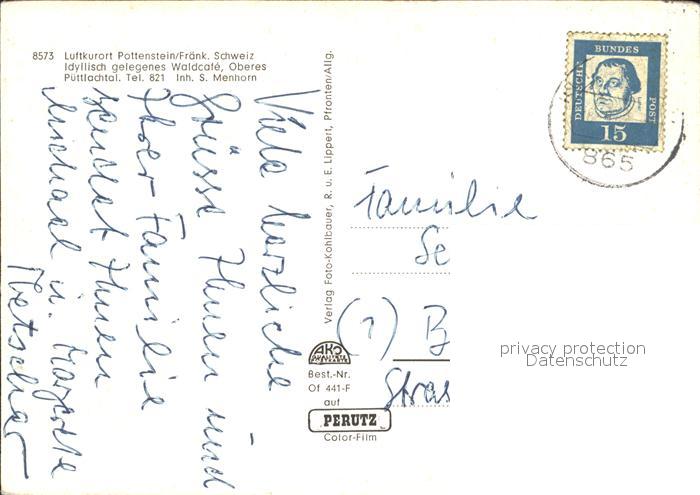 8573 Luftkurort Pottenstein/Fränk. Schweiz
Idyllisch gelegenes Waldcafé, Oberes
Püttlachtal. Tel. 821 Inh. S. Menhorn
Viele herzliche
Grüsse Ihnen und
Ihrer Familie
sendet Ihnen
Michael u. Margarete
Verlag Foto-Kohlbauer, R. u. E. Lippert, Pfronten/Allg.
DEUTSCHE
BUNDES
POST
15
865
Familie
Se
(1) B
Stras
AKO
QUALITÄTS
KARTE
Best.-Nr.
Of 441-F
auf
PERUTZ
Color-Film
privacy protection
Datenschutz